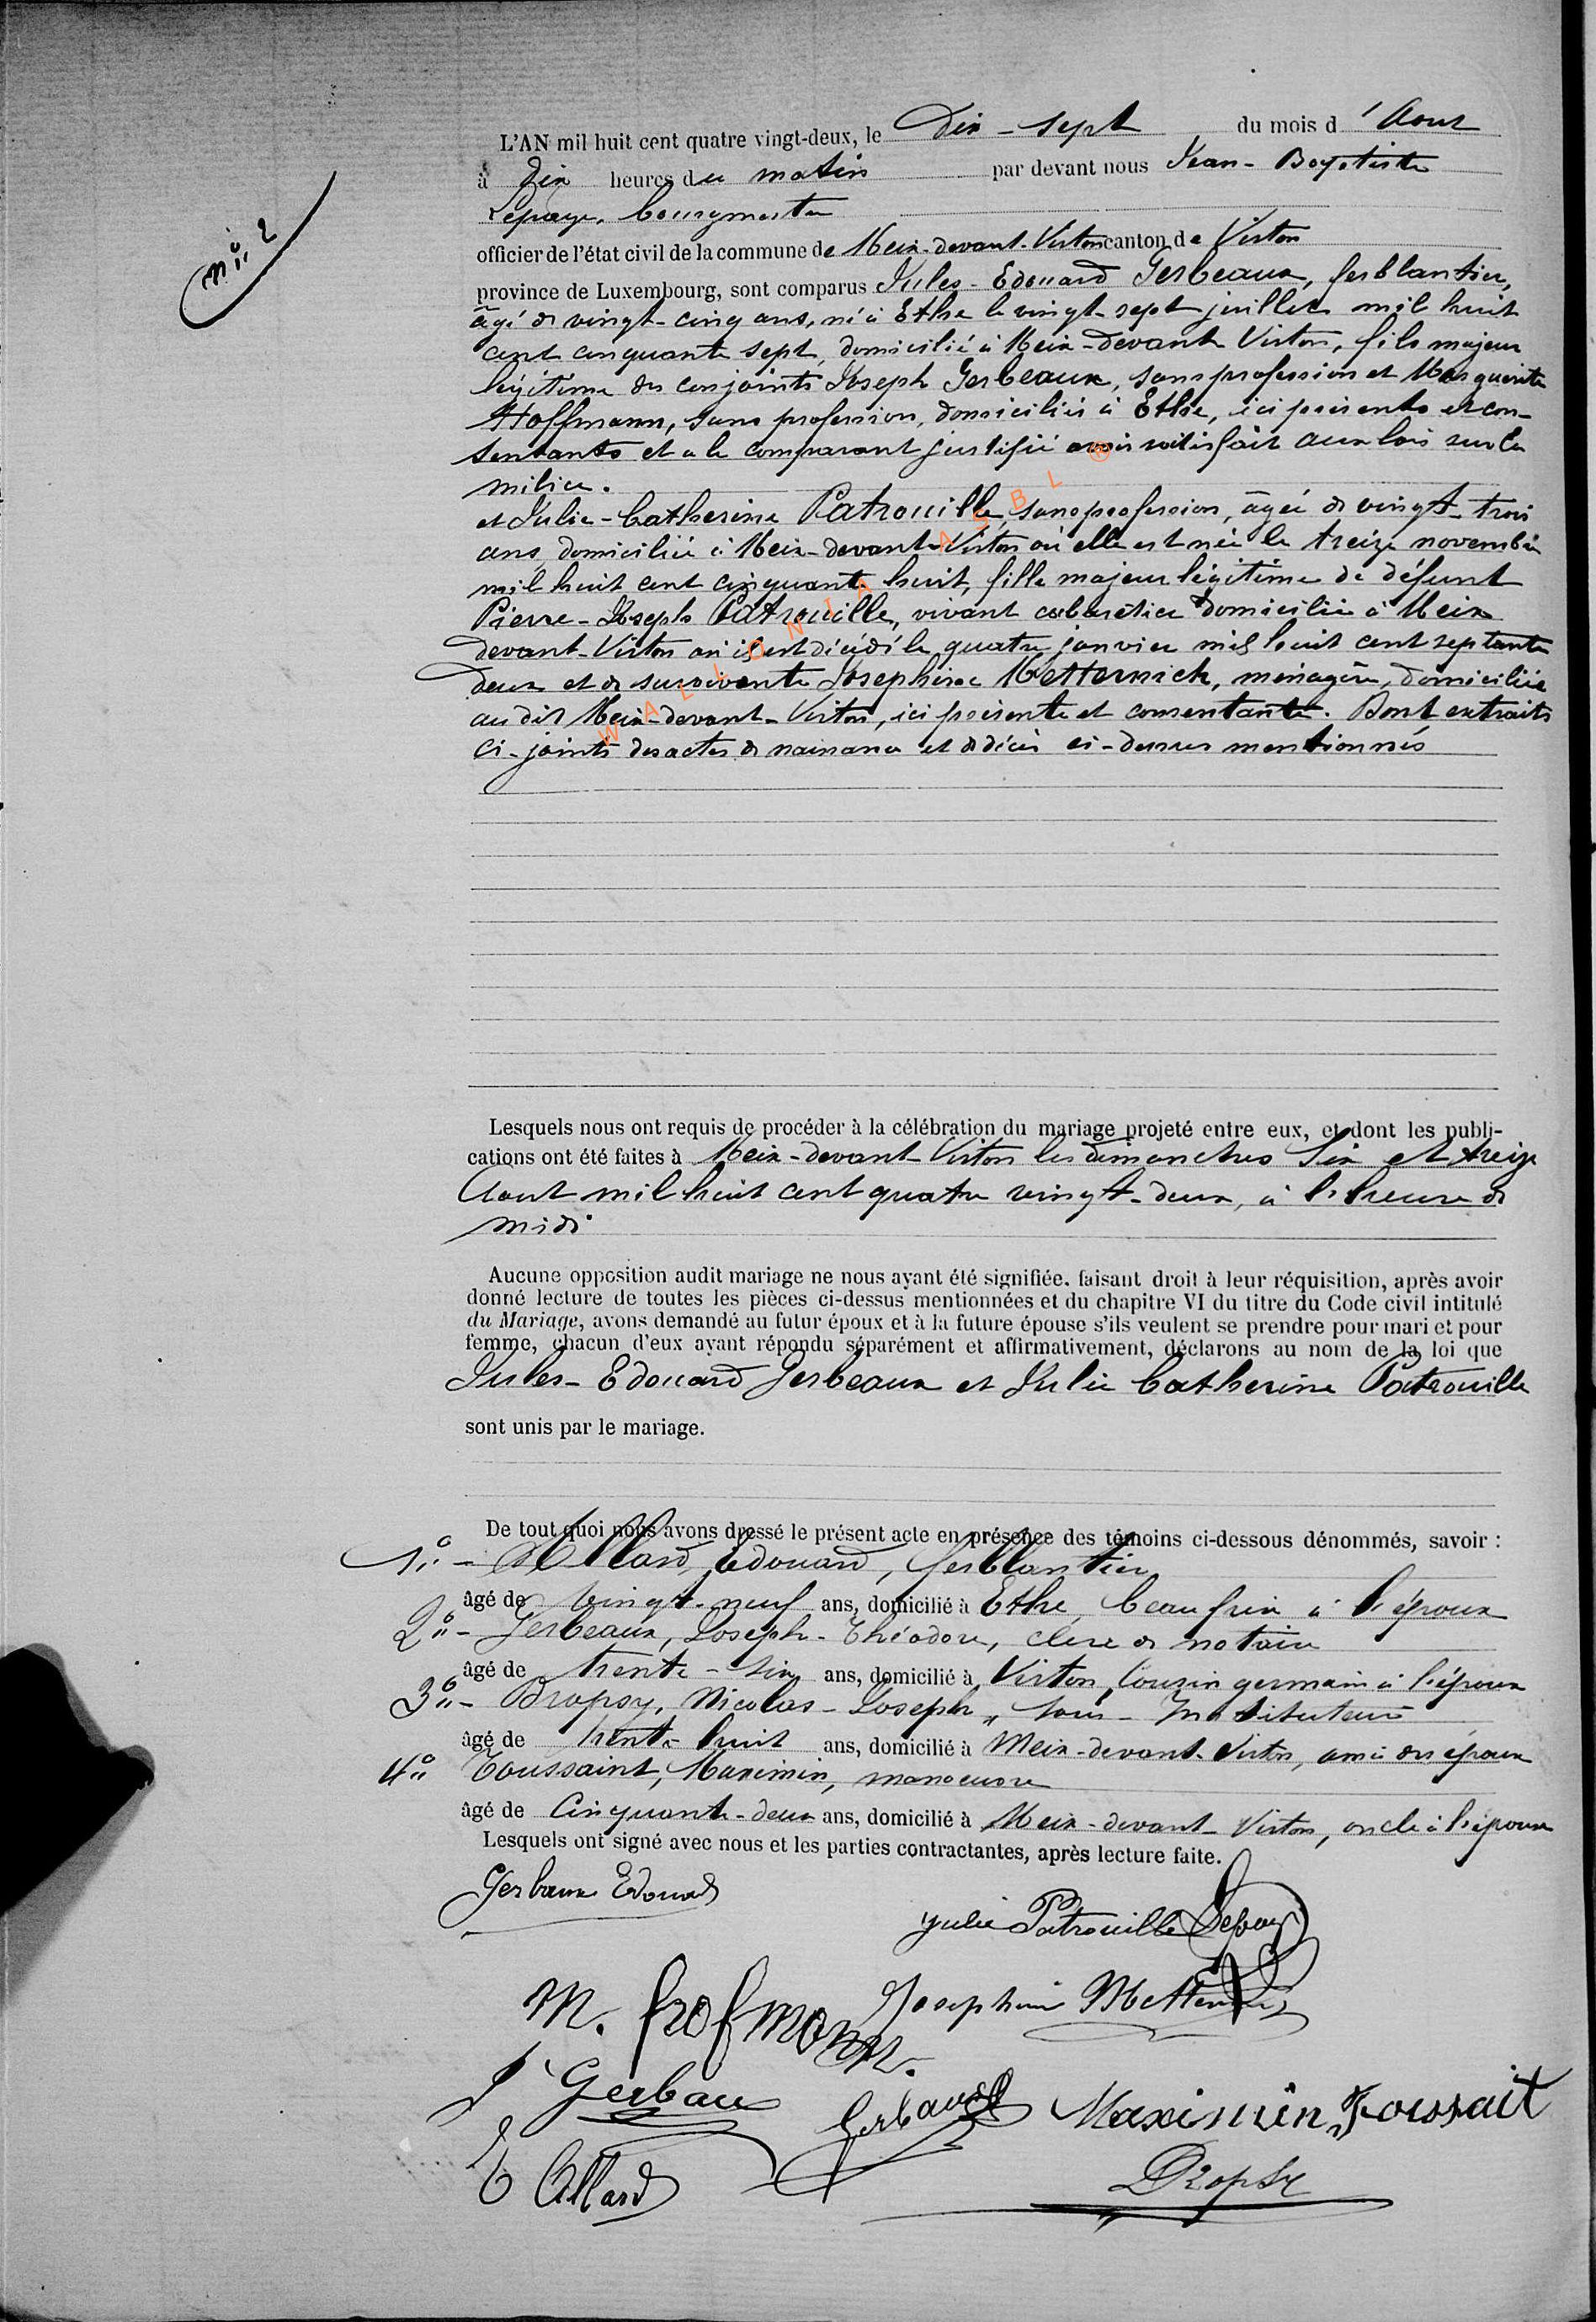 n° 2
L'AN mil huit cent quatre vingt-deux, le Dix-sept du mois d'Aout
à dix heures du matin par devant nous Jean-Baptiste
Lepage, bourgmestre
officier de l'état civil de la commune de Meix-devant-Virton canton de Virton
province de Luxembourg, sont comparus Jules-Edouard Gerbeaux, ferblantier,
âgé de vingt-cinq ans, né à Ethe le vingt-sept juillet mil huit
cent cinquante sept, domicilié à Meix-devant Virton, fils majeur
légitime des conjoints Joseph Gerbeaux, sans profession et Marguerite
Hoffmann, sans profession, domiciliés à Ethe, ici présents et con-
sentants et a le comparant justifié avoir satisfait aux lois sur la
milice.
et Julie-Catherine Patrouille, sans profession, âgée de vingt-trois
ans, domiciliée à Meix-devant-Virton où elle est née le treize novembre
mil huit cent cinquante huit, fille majeur légitime de défunt
Pierre-Joseph Patrouille, vivant cabaretier domicilié à Meix
devant-Virton où il est décédé le quatre janvier mil huit cent septante
deux et de survivante Josephine Metternich, ménagère, domiciliée
au dit Meix-devant-Virton, ici présente et consentante. Dont extraits
ci-joints des actes de naissance et de décès ci-dessus mentionnés
WALLONIA ASBL ®
Lesquels nous ont requis de procéder à la célébration du mariage projeté entre eux, et dont les publi-
cations ont été faites à Meix-devant-Virton les dimanches Six et treize
Aout mil huit cent quatre vingt-deux, à l'heure de
midi
Aucune opposition audit mariage ne nous ayant été signifiée. faisant droit à leur réquisition, après avoir
donné lecture de toutes les pièces ci-dessus mentionnées et du chapitre VI du titre du Code civil intitulé
du Mariage, avons demandé au futur époux et à la future épouse s'ils veulent se prendre pour mari et pour
femme, chacun d'eux ayant répondu séparément et affirmativement, déclarons au nom de la loi que
Jules-Edouard Gerbeaux et Julie Catherine Patrouille
sont unis par le mariage.
De tout quoi nous avons dressé le présent acte en présence des témoins ci-dessous dénommés, savoir :
1° - Allard, Edouard, ferblantier
âgé de vingt-neuf ans, domicilié à Ethe, beau frère à l'époux
2° - Gerbeaux, Joseph-Théodore, clerc de notaire
âgé de trente-six ans, domicilié à Virton, Couzin germain à l'époux
3° - Dropsy, Nicolas-Joseph, sous-Instituteur
âgé de trente-huit ans, domicilié à Meix-devant-Virton, ami des époux
4° Toussaint, Maximin, manoeuvre
âgé de Cinquante-deux ans, domicilié à Meix-devant-Virton, oncle à l'épouse
Lesquels ont signé avec nous et les parties contractantes, après lecture faite.
Gerbaux Edouard
Julie Patrouille Lepage
M. hofmann.
Josephine Metternich
J Gerbaux
Gerbaux
Maximin Toussait
E Allard
Dropsy